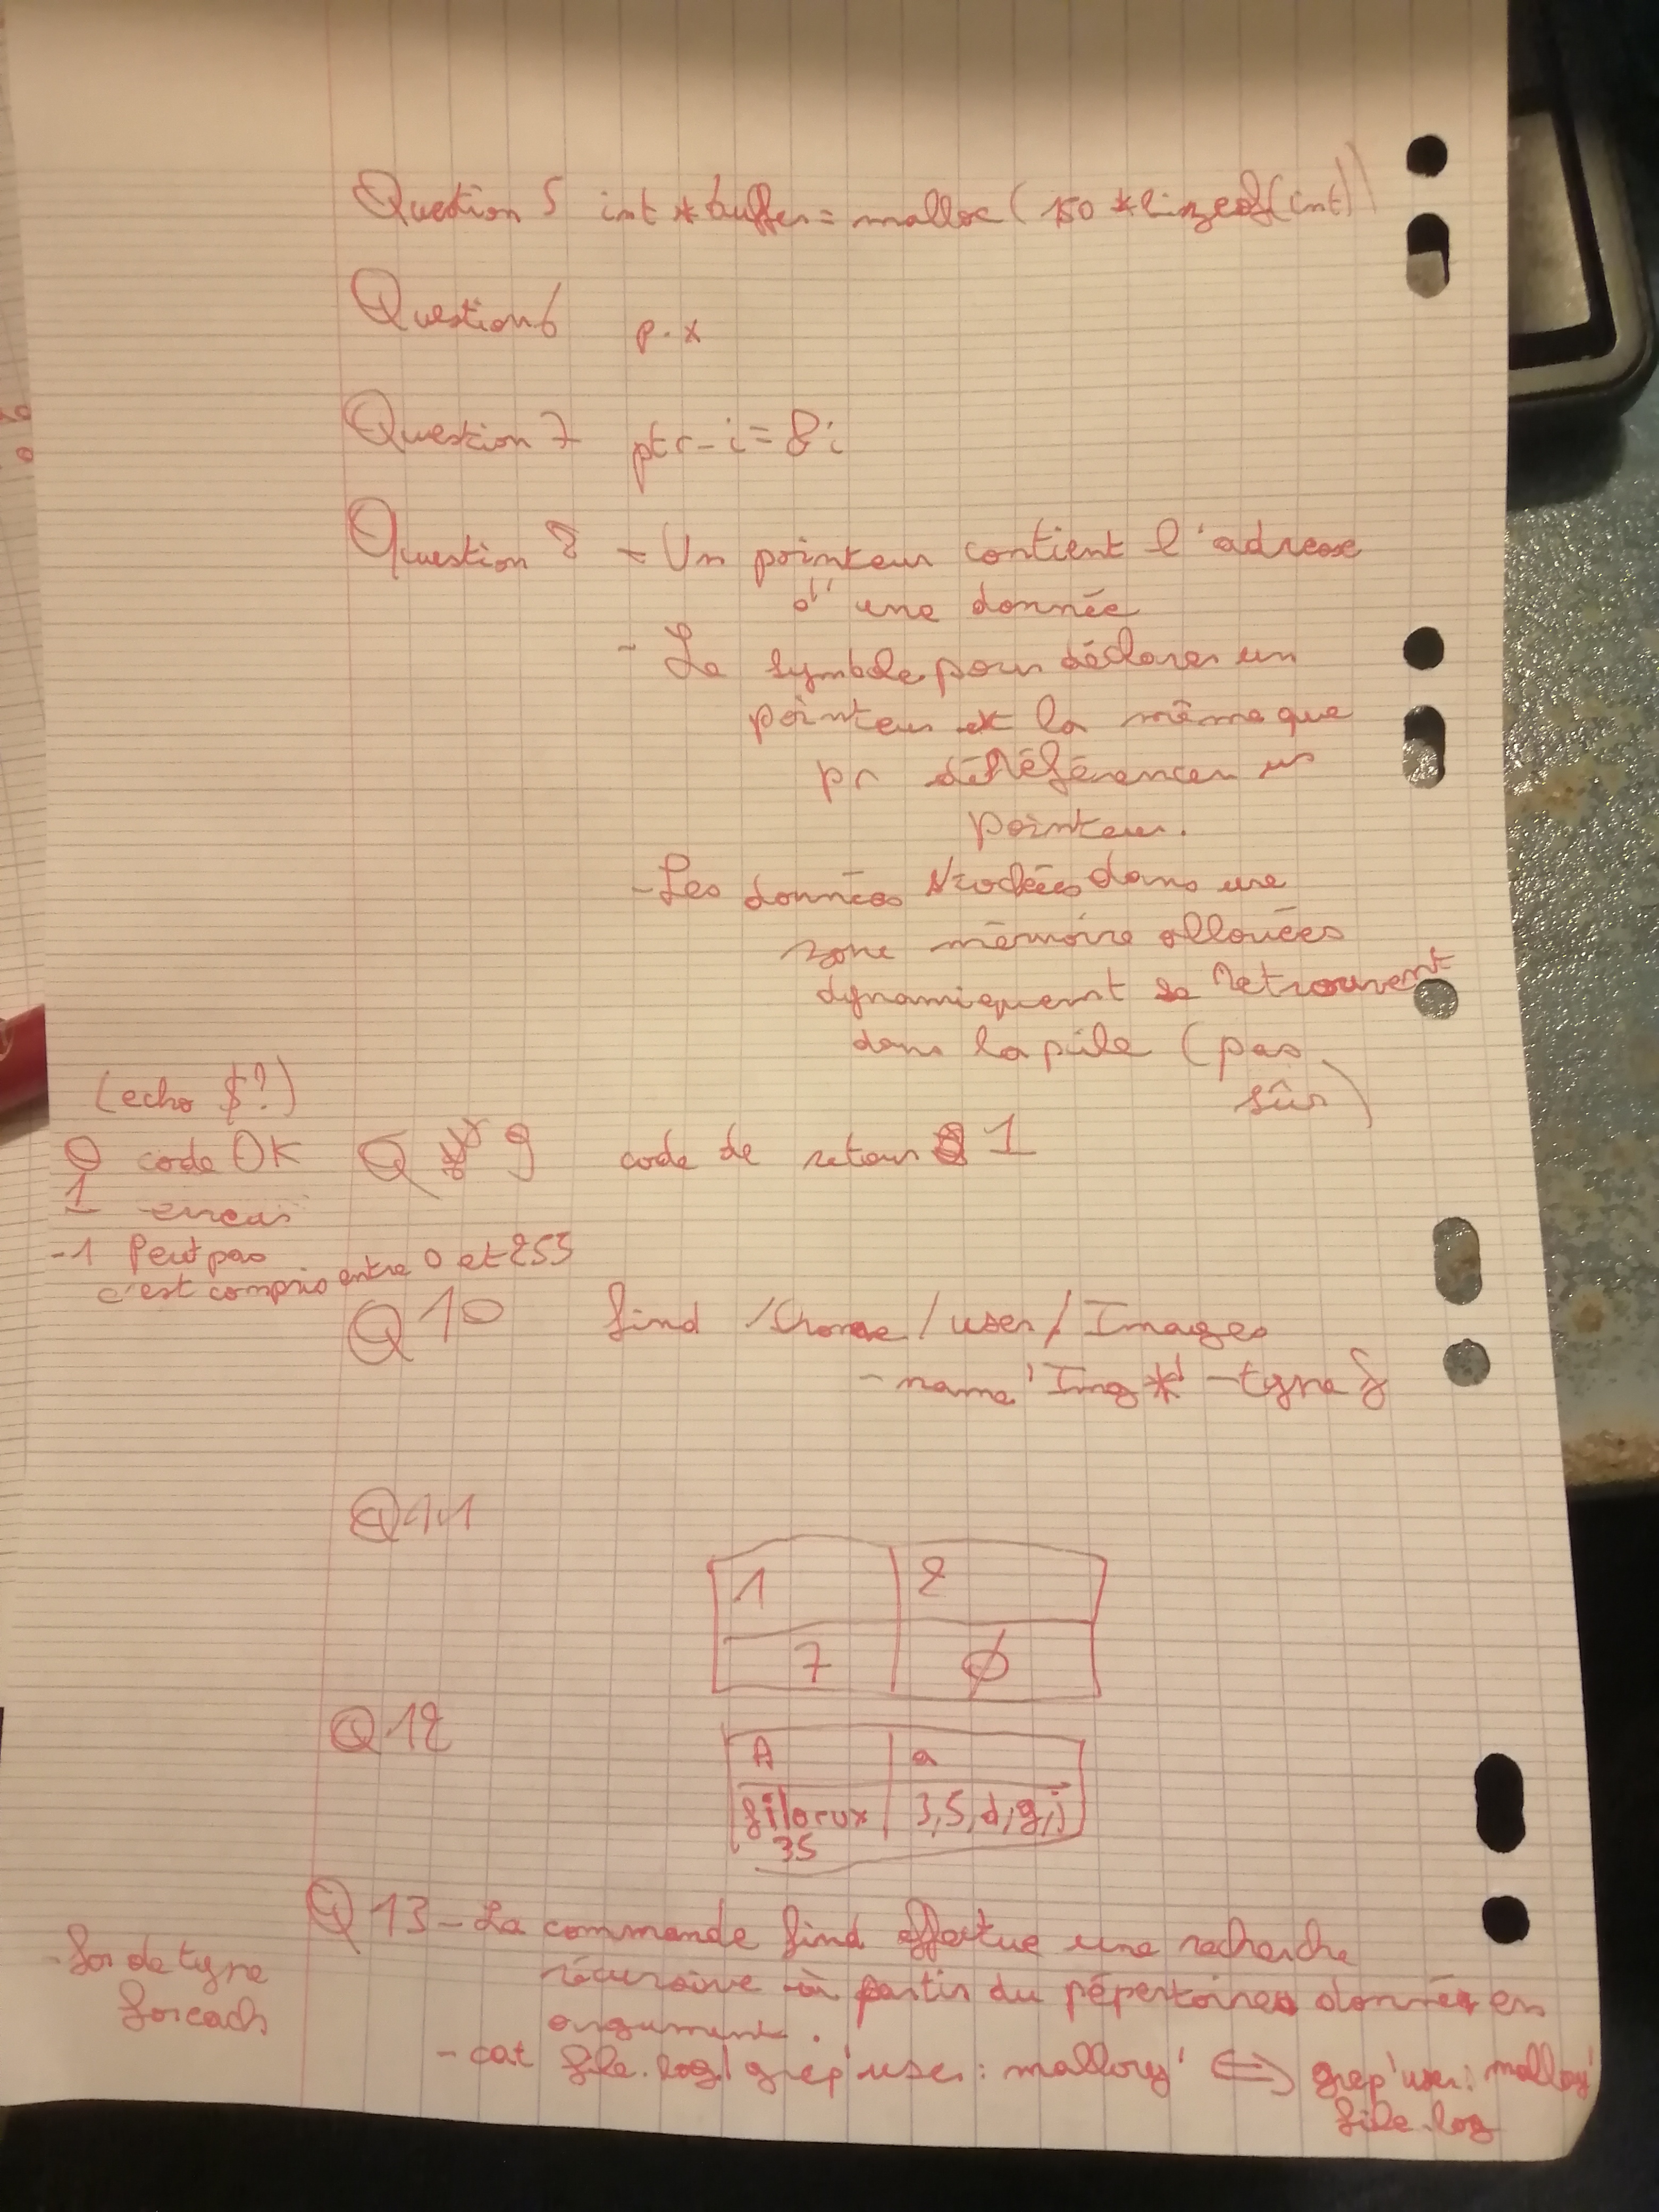 Question 5 int *buffer = malloc(150 * sizeof(int))
Question 6 p.x
Question 7 ptr_i = &i
Question 8 - Un pointeur contient l'adresse
d'une donnée
- Le symbole pour déclarer un
pointeur est la même que
pr déréférencer un
pointeur.
- Les données stockées dans une
zone mémoire allouées
dynamiquement se retrouvent
dans la pile (pas
sûr)
(echo $?)
0 code OK
1 erreur
-1 Peut pas
c'est compris entre 0 et 255
Q 9 code de retour 1
Q10 find /home/user/Images
-name 'Img*' -type f
Q11
1 2
7 ∅
Q12
A a
filorux 3,5,d,g,j
35
Q13 - La commande find effectue une recherche
récursive à partir du répertoires donnée en
argument.
- for de type
foreach
- cat file.log | grep 'user: mallory' <=> grep 'user: mallory'
file.log